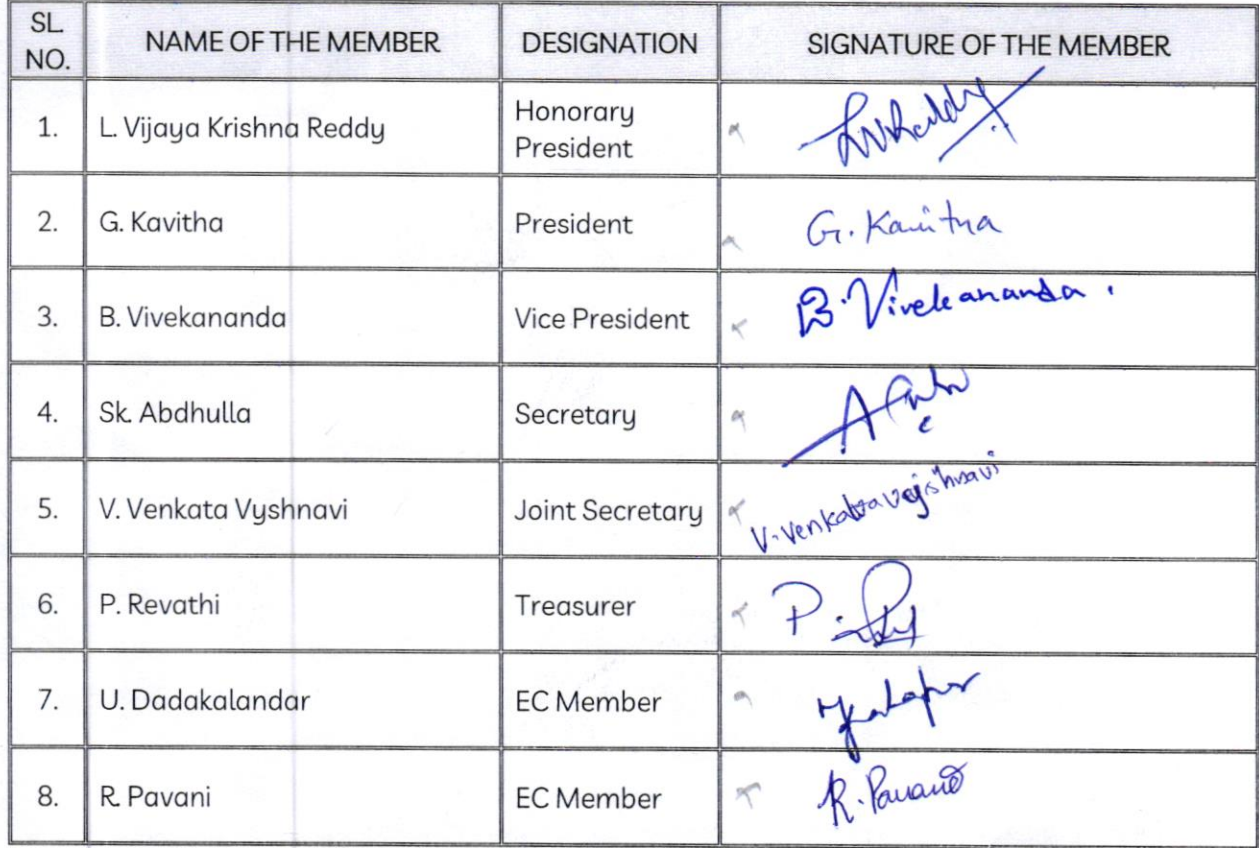 SL. NO. NAME OF THE MEMBER DESIGNATION SIGNATURE OF THE MEMBER
1. L. Vijaya Krishna Reddy Honorary President LVKReddy
2. G. Kavitha President G. Kavitha
3. B. Vivekananda Vice President B. Vivekananda.
4. Sk. Abdhulla Secretary
5. V. Venkata Vyshnavi Joint Secretary V. Venkata vyishnavi
6. P. Revathi Treasurer P.
7. U. Dadakalandar EC Member
8. R. Pavani EC Member R. Pavani